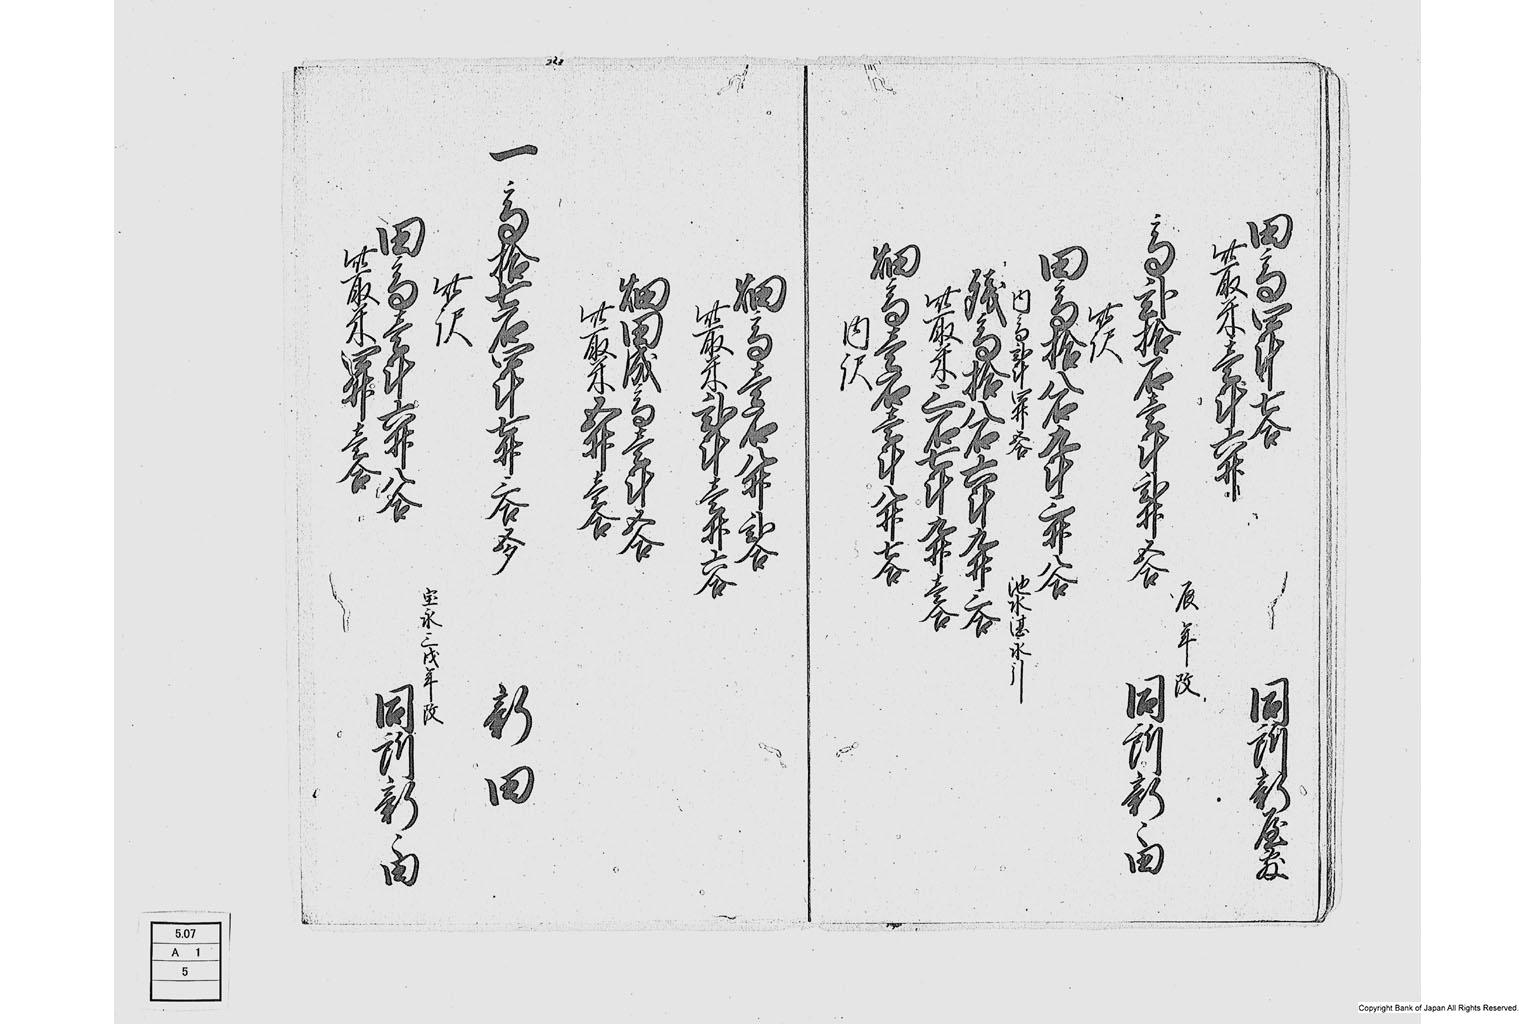 田高四斗七合 同所新屋敷
此取米壱斗六升
高弐拾石壱斗弐升五合 辰年改 同所新田
此訳
田高拾八石九斗三升八合
内高弐斗四升六合 池水湛水引
残高拾八石六斗九升二合
此取米三石七斗九升壱合
畑高壱石壱斗八升七合
内訳
畑高壱石八升弐合
此取米弐斗壱升六合
畑田成高壱斗五合
此取米五升壱合
一高拾七石四斗七升三合五夕 新田
此訳
田高壱斗六升八合 宝永三戌年改 同所新田
此取米四升壱合
5.07
A 1
5
Copyright Bank of Japan All Rights Reserved.